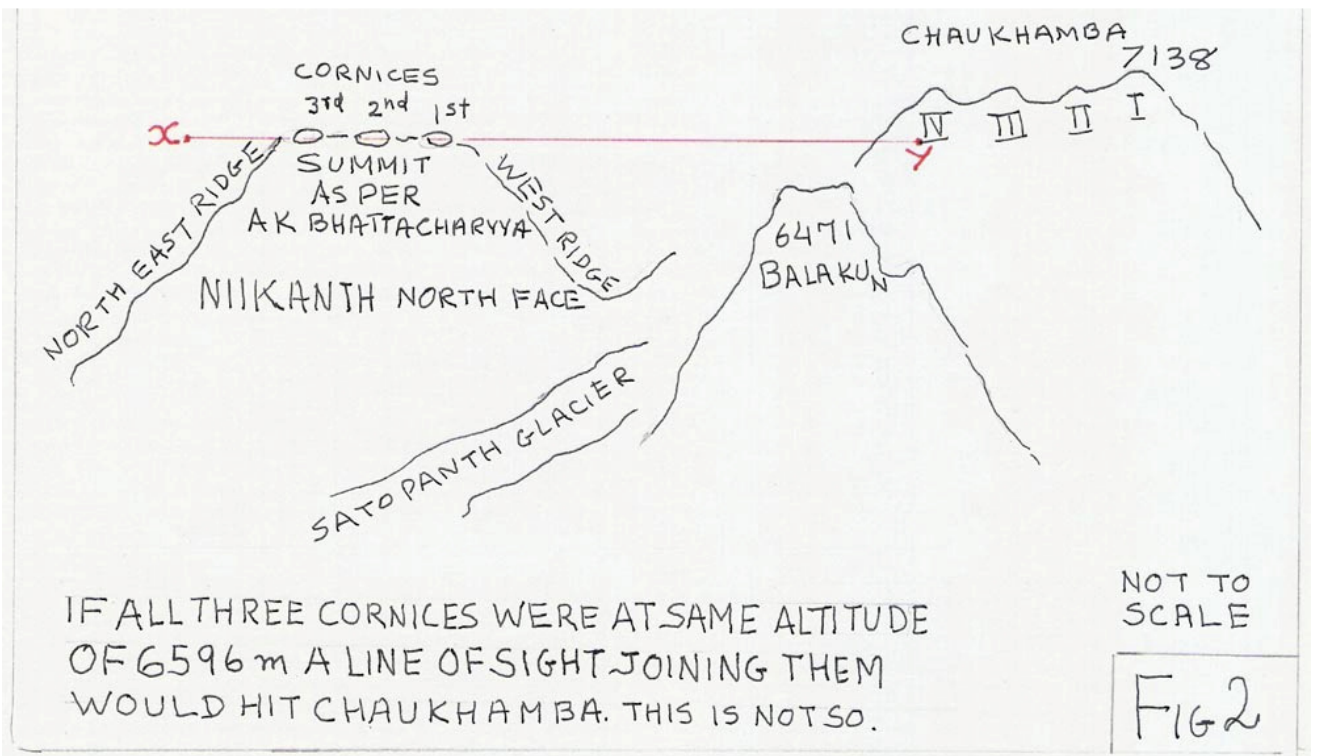 CHAUKHAMBA
7138
CORNICES
3rd 2nd 1st
IV III II I
X
Y
SUMMIT
AS PER
A K BHATTACHARYYA
NORTH EAST RIDGE
WEST RIDGE
NIIKANTH NORTH FACE
6471
BALAKUN
SATO PANTH GLACIER
NOT TO
SCALE
IF ALL THREE CORNICES WERE AT SAME ALTITUDE
OF 6596 m A LINE OF SIGHT JOINING THEM
WOULD HIT CHAUKHAMBA. THIS IS NOT SO.
FIG 2